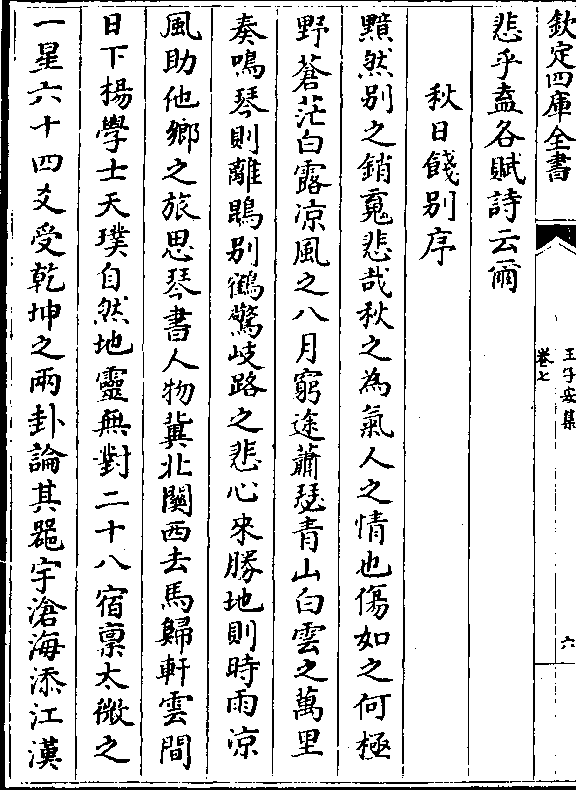 欽定四庫全書
王子安集
卷七
六
悲乎盍各賦詩云爾
秋日餞別序
黯然別之銷䰟悲哉秋之為氣人之情也傷如之何極
野蒼茫白露凉風之八月窮途蕭瑟青山白雲之萬里
奏鳴琴則離鵾別鶴驚岐路之悲心來勝地則時雨凉
風助他鄉之旅思琴書人物冀北關西去馬歸軒雲間
日下楊學士天璞自然地靈無對二十八宿禀太微之
一星六十四爻受乾坤之兩卦論其器宇滄海添江漢